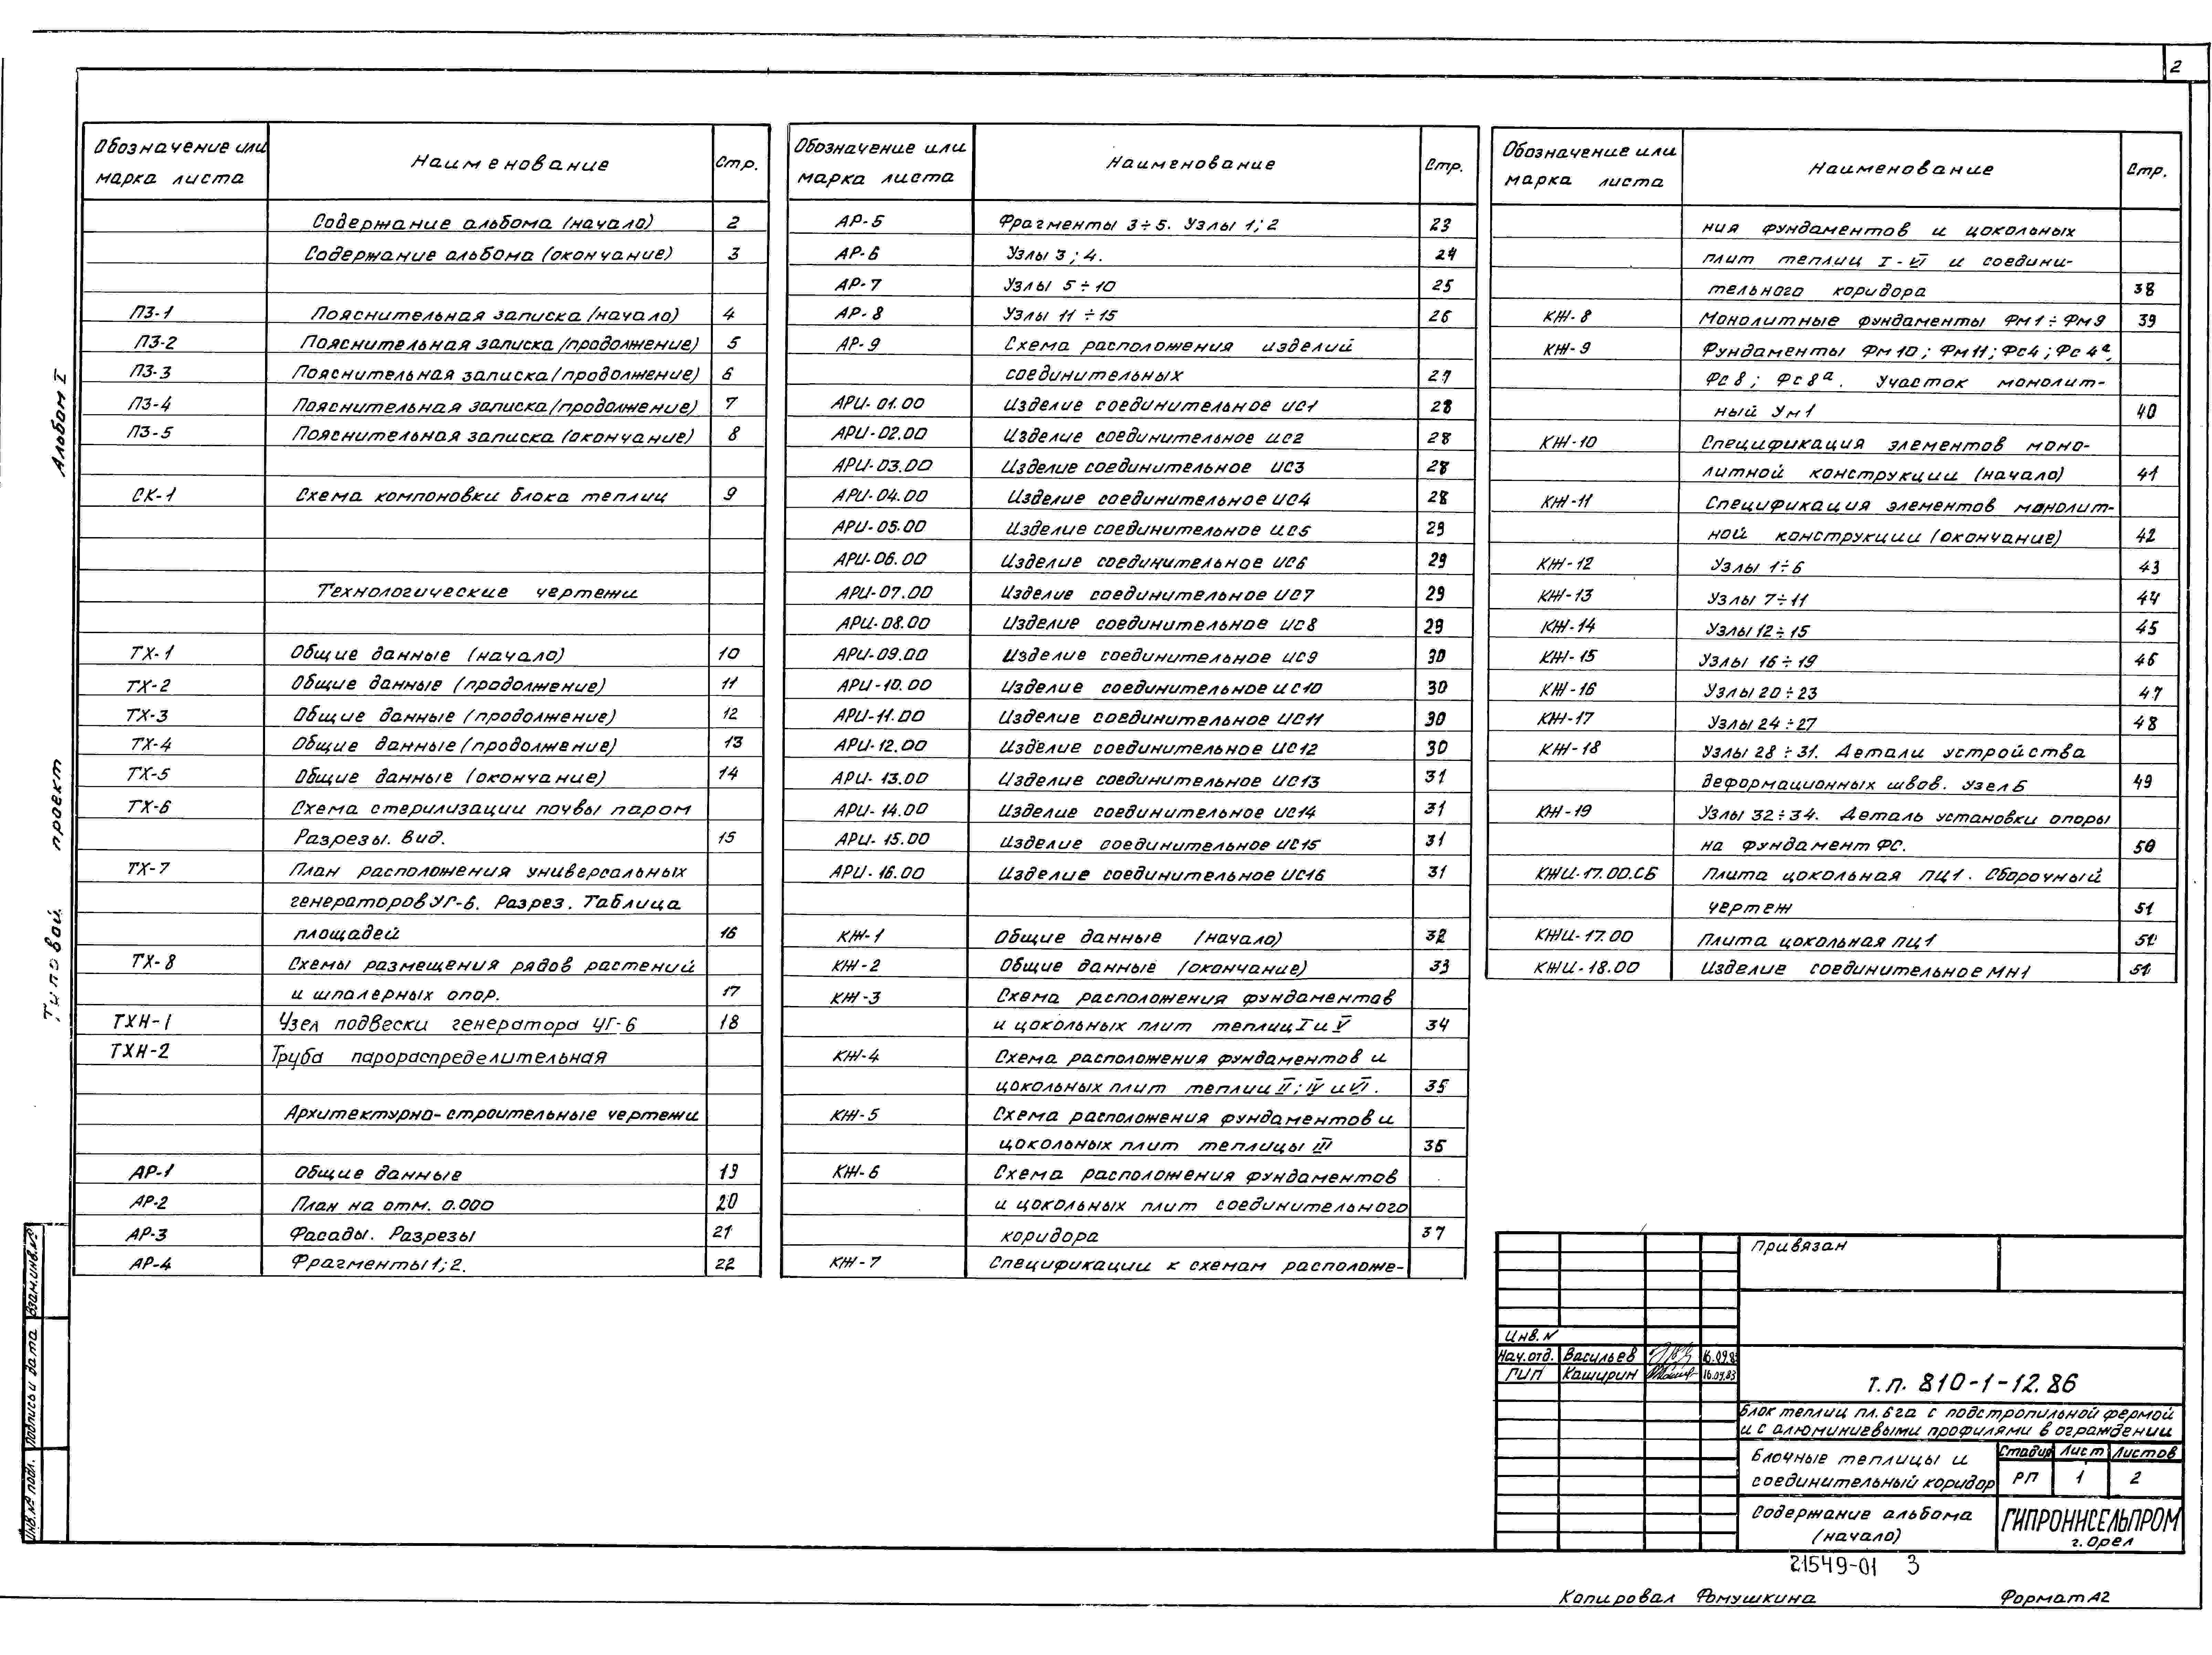 2
Обозначение или марка листа Наименование Стр.
Содержание альбома (начало) 2
Содержание альбома (окончание) 3
ПЗ-1 Пояснительная записка (начало) 4
ПЗ-2 Пояснительная записка (продолжение) 5
ПЗ-3 Пояснительная записка (продолжение) 6
ПЗ-4 Пояснительная записка (продолжение) 7
ПЗ-5 Пояснительная записка (окончание) 8
СК-1 Схема компоновки блока теплиц 9
Технологические чертежи
ТХ-1 Общие данные (начало) 10
ТХ-2 Общие данные (продолжение) 11
ТХ-3 Общие данные (продолжение) 12
ТХ-4 Общие данные (продолжение) 13
ТХ-5 Общие данные (окончание) 14
ТХ-6 Схема стерилизации почвы паром
Разрезы. Вид. 15
ТХ-7 План расположения универсальных
генераторов УГ-6. Разрез. Таблица
площадей 16
ТХ-8 Схемы размещения рядов растений
и шпалерных опор. 17
ТХН-1 Узел подвески генератора УГ-6 18
ТХН-2 Труба парораспределительная
Архитектурно-строительные чертежи
АР-1 Общие данные 19
АР-2 План на отм. 0.000 20
АР-3 Фасады. Разрезы 21
АР-4 Фрагменты 1; 2. 22
Обозначение или марка листа Наименование Стр.
АР-5 Фрагменты 3÷5. Узлы 1; 2 23
АР-6 Узлы 3; 4. 24
АР-7 Узлы 5÷10 25
АР-8 Узлы 11÷15 26
АР-9 Схема расположения изделий
соединительных 27
АРИ-01.00 Изделие соединительное ИС1 28
АРИ-02.00 Изделие соединительное ИС2 28
АРИ-03.00 Изделие соединительное ИС3 28
АРИ-04.00 Изделие соединительное ИС4 28
АРИ-05.00 Изделие соединительное ИС5 29
АРИ-06.00 Изделие соединительное ИС6 29
АРИ-07.00 Изделие соединительное ИС7 29
АРИ-08.00 Изделие соединительное ИС8 29
АРИ-09.00 Изделие соединительное ИС9 30
АРИ-10.00 Изделие соединительное ИС10 30
АРИ-11.00 Изделие соединительное ИС11 30
АРИ-12.00 Изделие соединительное ИС12 30
АРИ-13.00 Изделие соединительное ИС13 31
АРИ-14.00 Изделие соединительное ИС14 31
АРИ-15.00 Изделие соединительное ИС15 31
АРИ-16.00 Изделие соединительное ИС16 31
КЖ-1 Общие данные (начало) 32
КЖ-2 Общие данные (окончание) 33
КЖ-3 Схема расположения фундаментов
и цокольных плит теплиц I и V 34
КЖ-4 Схема расположения фундаментов и
цокольных плит теплиц II; IV и VI. 35
КЖ-5 Схема расположения фундаментов и
цокольных плит теплицы III 36
КЖ-6 Схема расположения фундаментов
и цокольных плит соединительного
коридора 37
КЖ-7 Спецификации к схемам расположе-
Обозначение или марка листа Наименование Стр.
ния фундаментов и цокольных
плит теплиц I-VI и соедини-
тельного коридора 38
КЖ-8 Монолитные фундаменты Фм1÷Фм9 39
КЖ-9 Фундаменты Фм10; Фм11; Фс4; Фс4а,
Фс8; Фс8а. Участок монолит-
ный Ум1 40
КЖ-10 Спецификация элементов моно-
литной конструкции (начало) 41
КЖ-11 Спецификация элементов монолит-
ной конструкции (окончание) 42
КЖ-12 Узлы 1÷6 43
КЖ-13 Узлы 7÷11 44
КЖ-14 Узлы 12÷15 45
КЖ-15 Узлы 16÷19 46
КЖ-16 Узлы 20÷23 47
КЖ-17 Узлы 24÷27 48
КЖ-18 Узлы 28÷31. Детали устройства
деформационных швов. Узел Б 49
КЖ-19 Узлы 32÷34. Деталь установки опоры
на фундамент ФС. 50
КЖИ-17.00.СБ Плита цокольная ПЦ1. Сборочный
чертеж 51
КЖИ-17.00 Плита цокольная ПЦ1 51
КЖИ-18.00 Изделие соединительное МН1 51
Альбом I
Типовой проект
Взам.инв.№
Подпись и дата
Инв.№ подл.
Привязан
Инв.N
Нач.отд. Васильев
ГИП Каширин 16.09.83
Т.п. 810-1-12.86
Блок теплиц пл. 6 га с подстропильной фермой
и с алюминиевыми профилями в ограждении
Блочные теплицы и
соединительный коридор
Стадия Лист Листов
РП 1 2
Содержание альбома
(начало)
ГИПРОНИСЕЛЬПРОМ
г. Орел
21549-01 3
Копировал Фомушкина Формат А2